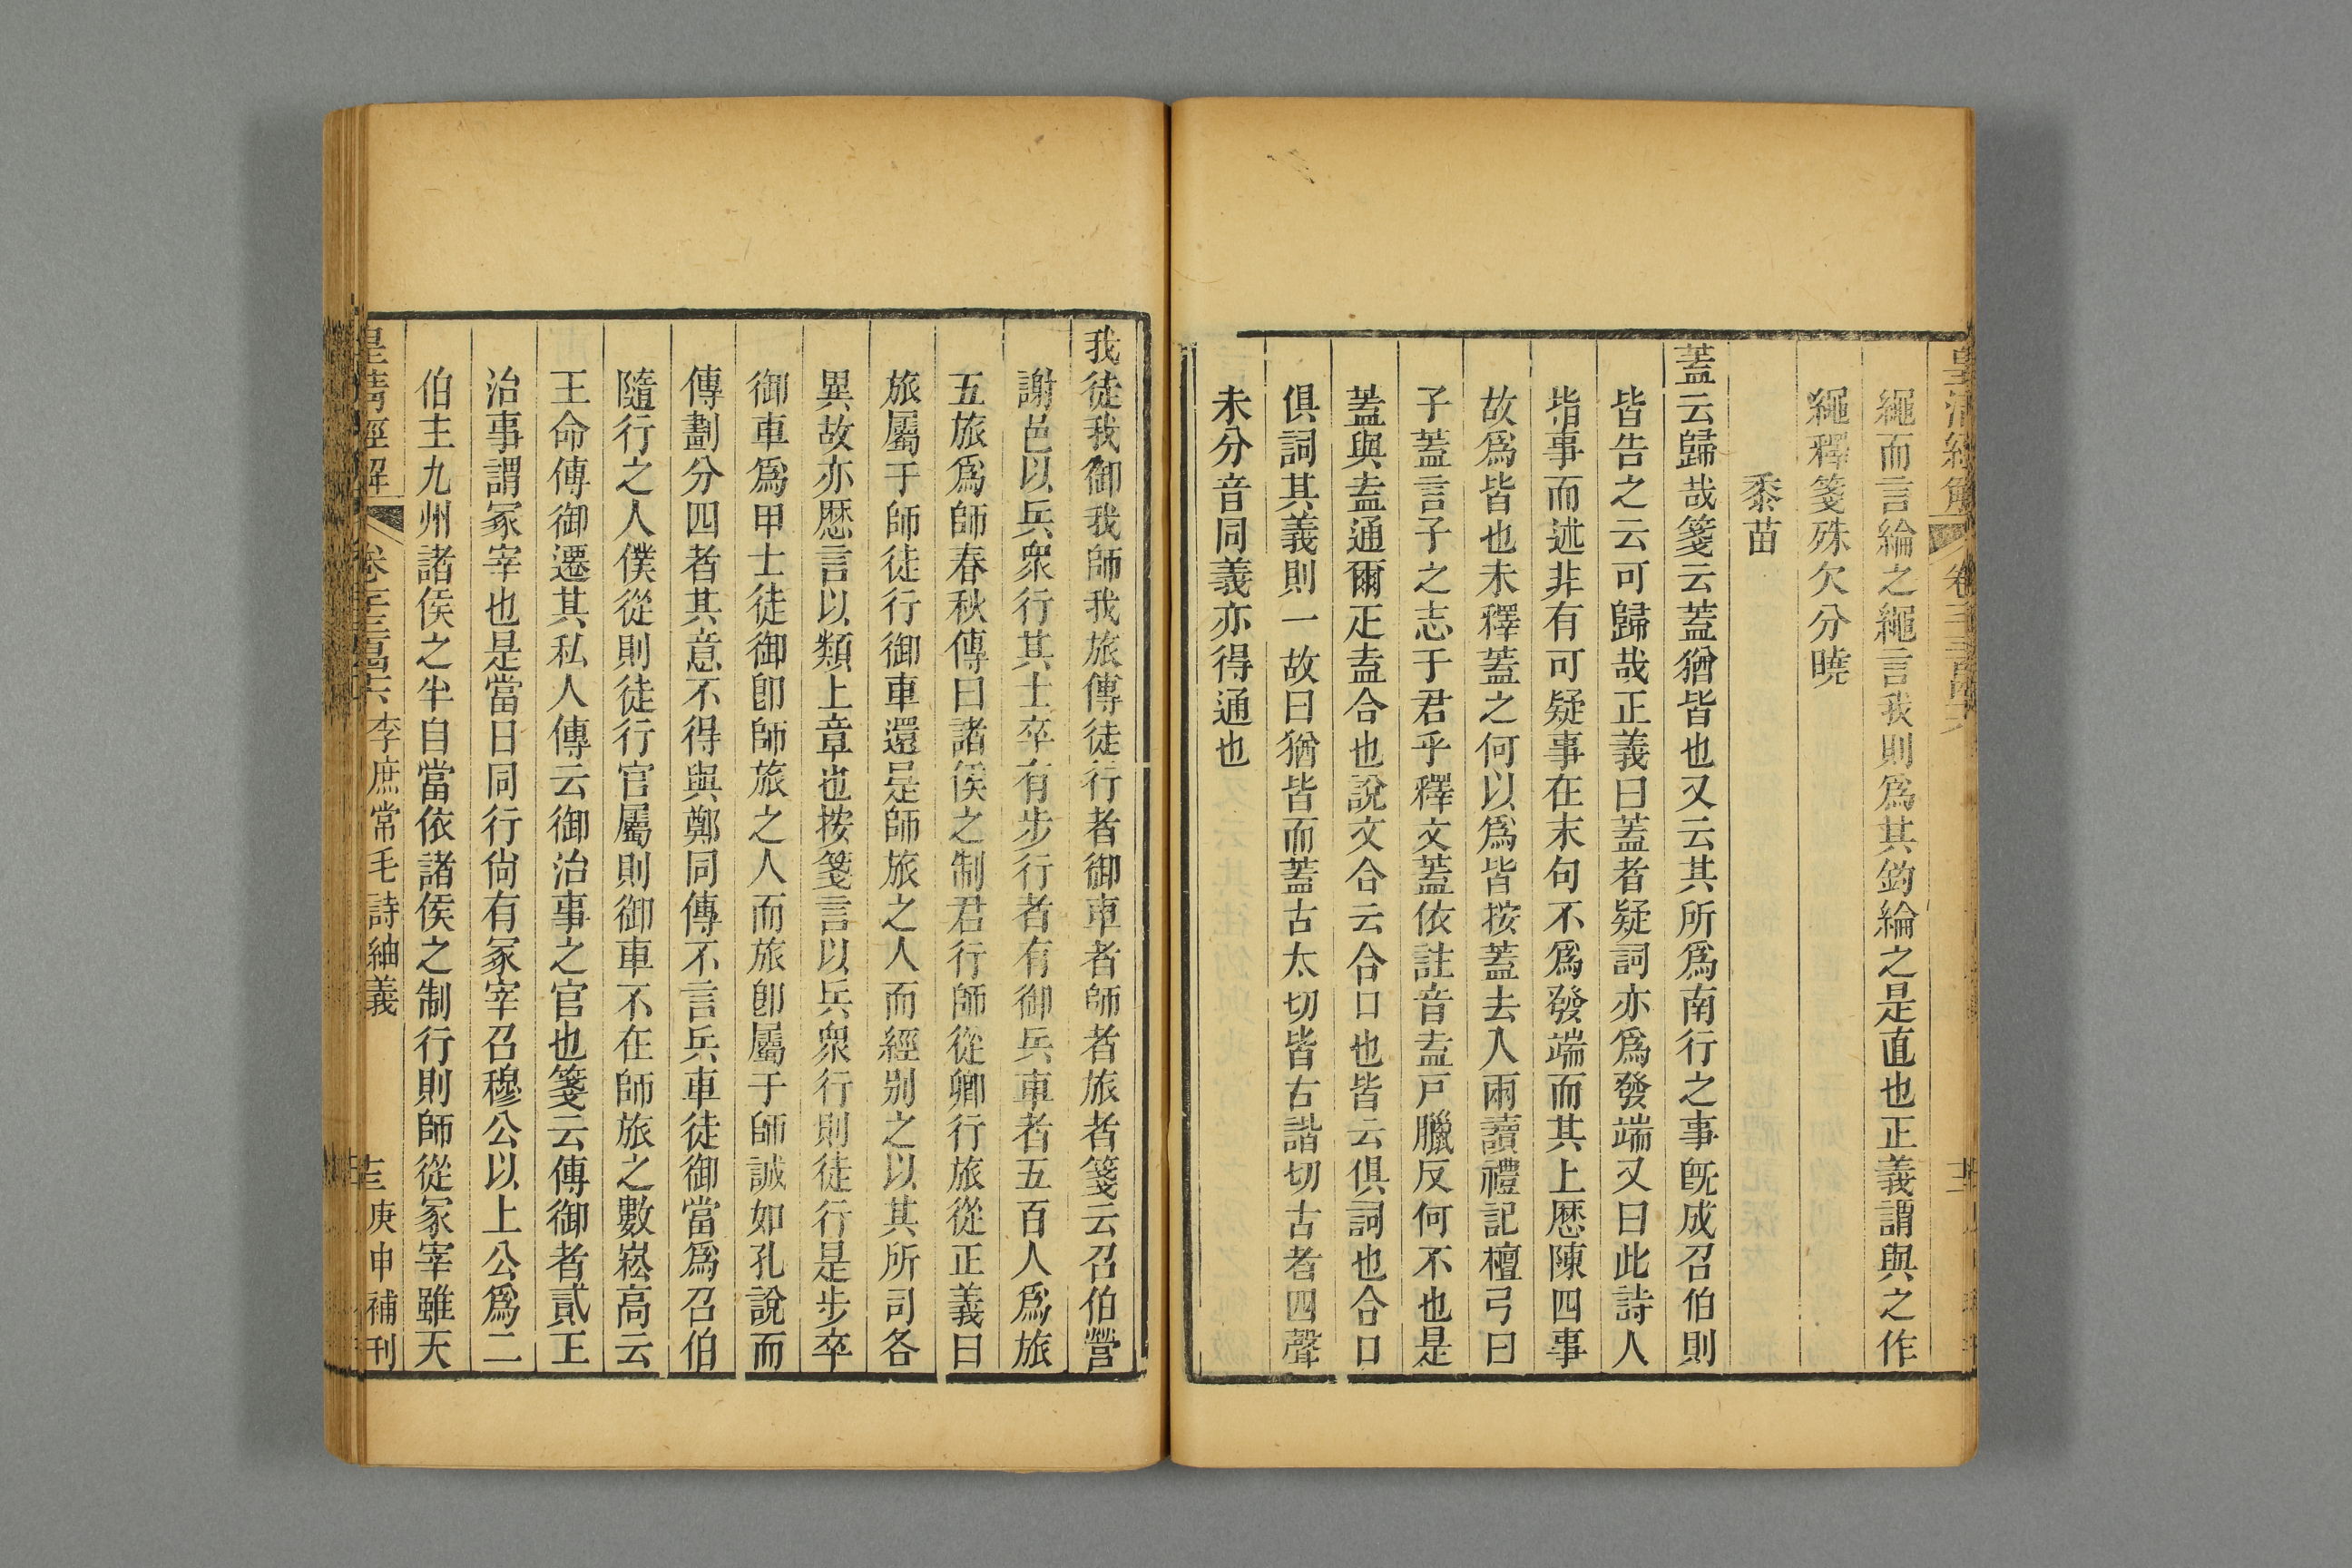 繩而言綸之繩言我則爲其釣綸之是直也正義謂與之作
繩釋箋殊欠分曉
黍苗
蓋云歸哉箋云蓋猶皆也又云其所爲南行之事旣成召伯則
皆告之云可歸哉正義曰蓋者疑詞亦爲發端又曰此詩人
指事而述非有可疑事在末句不爲發端而其上厯陳四事
故爲皆也未釋蓋之何以爲皆按蓋去入兩讀禮記檀弓曰
子蓋言子之志于君乎釋文蓋依註音盍戸臘反何不也是
蓋與盍通爾疋盍合也說文合云合口也皆云俱詞也合口
俱詞其義則一故曰猶皆而蓋古太切皆古諧切古者四聲
未分音同義亦得通也
我徒我御我師我旅傳徒行者御車者師者旅者箋云召伯營
謝邑以兵衆行其士卒有步行者有御兵車者五百人爲旅
五旅爲師春秋傳曰諸侯之制君行師從卿行旅從正義曰
旅屬于師徒行御車還是師旅之人而經別之以其所司各
異故亦厯言以類上章也按箋言以兵衆行則徒行是步卒
御車爲甲士徒御卽師旅之人而旅卽屬于師誠如孔說而
傳劃分四者其意不得與鄭同傳不言兵車徒御當爲召伯
隨行之人僕從則徒行官屬則御車不在師旅之數崧高云
王命傳御遷其私人傳云御治事之官也箋云傳御者貳王
治事謂冢宰也是當日同行尙有冢宰召穆公以上公爲二
伯主九州諸侯之半自當依諸侯之制行則師從冢宰雖天
皇淸經解 李庶常毛詩紬義 庚申補刊